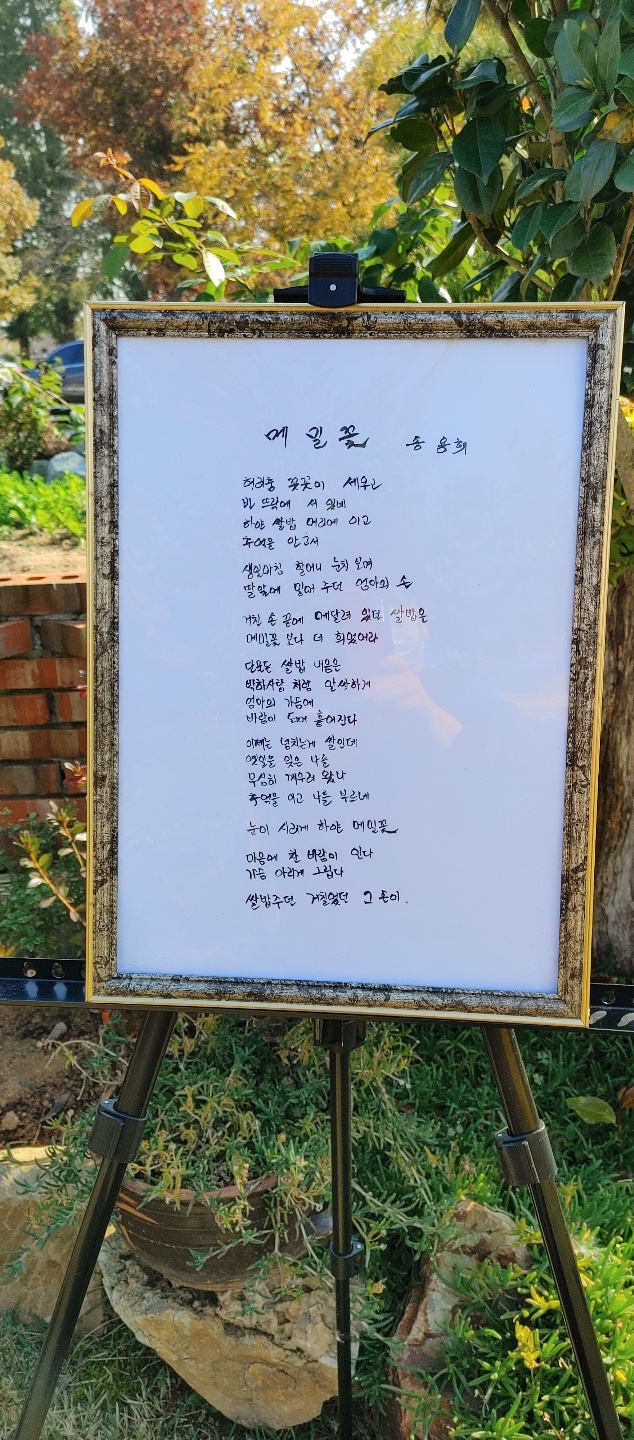 메밀꽃 송용희
허리춤 꼿꼿이 세우고
빈 뜨락에 서 있네
하얀 쌀밥 머리에 이고
추억을 안고서
생일아침 할머니 눈치 보며
딸앞에 밀어 주던 엄마의 손
거친 손 끝에 메달려 있던 쌀밥은
메밀꽃 보다 더 희었어라
쌀밥 내음은
박하사탕 처럼 알싸하게
엄마의 가슴에
바람이 되어 흩어진다
이제는 넘치는게 쌀인데
옛일을 잊은 나를
무심히 깨우러 왔나
추억을 이고 나를 부르네
눈이 시리게 하얀 메밀꽃
마음에 찬 바람이 인다
가슴 아리게 그립다
쌀밥주던 거칠었던 그 손이.